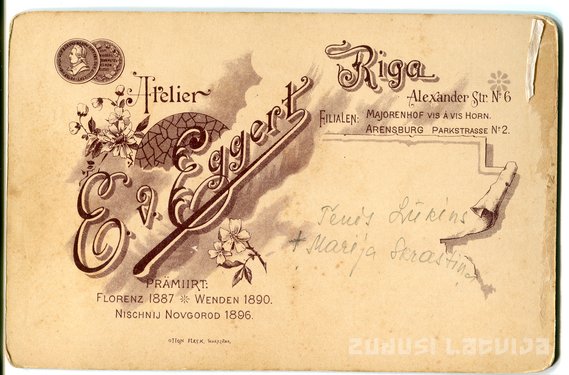 Atelier
E. v. Eggert
Riga
Alexander Str. № 6
Filialen: Majorenhof vis à vis Horn.
Arensburg Parkstrasse № 2.
Prämiirt:
Florenz 1887 ❊ Wenden 1890.
Nischnij Novgorod 1896.
Tenis Lūkins
+ Marija Skrastiņa
zudusi latvija